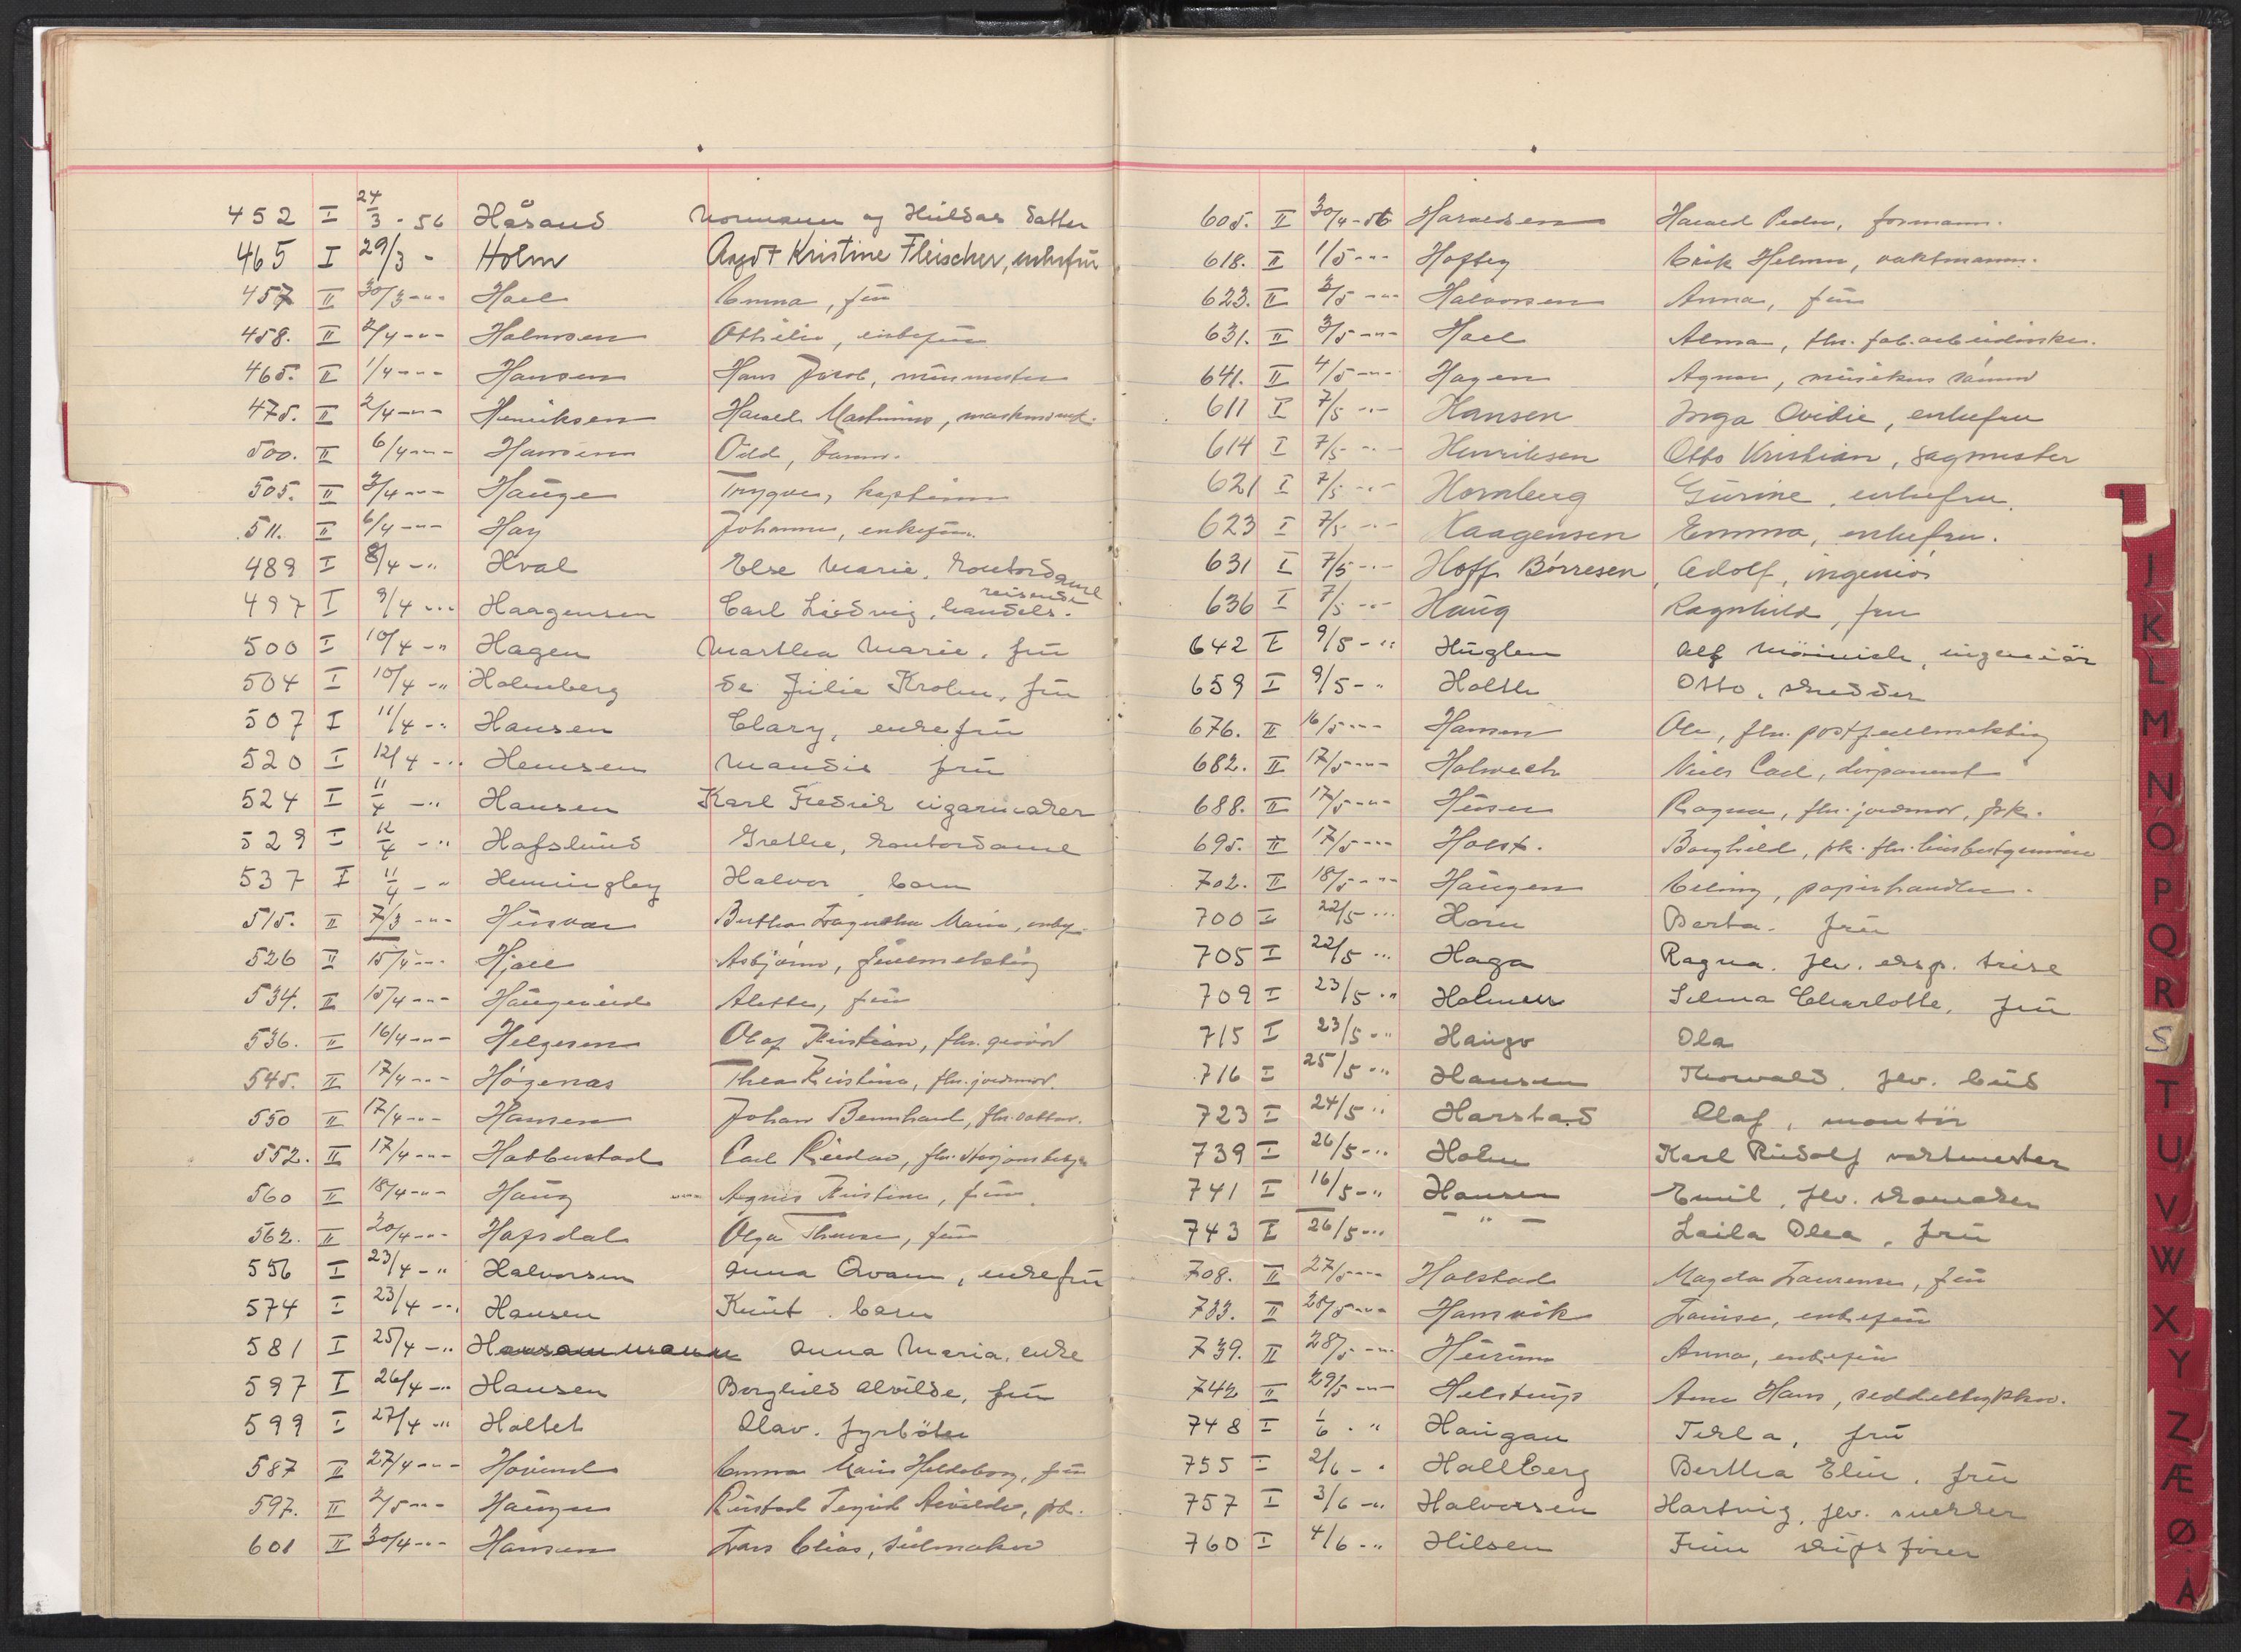 452 I 24/3 - 56 Håsand Normann og Huldas datter
465 I 29/3 - Holm Aagot Kristine Fleischer, enkefru
457 II 30/3 -"- Hoel Emma, fru
458. II 2/4 -"- Halvorsen Othilie, enkefru
465. II 1/4 -"- Hansen Hans Jacob, murmester
475. II 2/4 -"- Henriksen Harald Martinius,
500. II 6/4 -"- Hansen Odd, barn.
505. II 3/4 -"- Hauge Trygve, kaptein
511. II 6/4 -"- Hay Johanne, enkefru.
489 I 8/4 -" Hval Else Marie, kontordame
497 I 9/4 -" Haagensen Carl Ludvig, handels- reisende
500 I 10/4 -" Hagen Marthea Marie, fru
504 I 10/4 -" Holmberg de Julie Krohn, fru
507 I 11/4 -" Hansen Clary, enkefru
520 I 12/4 -" Hemsen Maudis fru
524 I 11/4 -" Hansen Karl Fredrik sigarmaker
529 I 12/4 -" Hafslund Grethe, kontordame
537 I 11/4 -" Hemingby Halvor, barn
515. II 7/3 -"- Husvar Berthea Marie,
526 II 15/4 -"- Hjell Asbjørn, fullmektig
534. II 15/4 -"- Alette, fru
536. II 16/4 -"- Helgesen Olaf Kristian, fhv.
545. II 17/4 -"- Høgenas Thea Kristine, fhv. jordmor.
550 II 17/4 -"- Hansen Johan Bernhard, fhv.
552. II 17/4 -"- Habberstad Carl fhv.
560 II 18/4 -"- Haug Agnes Kristine, fru.
562. II 20/4 -"- Hafsdal Olga fru
556 I 23/4 -" Halvorsen Anna Qvam, enkefru
574 I 23/4 -" Hansen Knut. barn
581 I 25/4 -" Anna Maria, enke
597 I 26/4 -" Hansen Borghild Alvilde, fru
599 I 27/4 -" Holtet Olav. fyrbøter
587 II 27/4 -"- Hovind Emma Marie Heldeborg, fru
597. II 2/5 -"- Haugen
601 II 30/4 -"- Hansen Lars Elias, salmaker
605. II 30/4 - 56 Haraldsen Harald Peder, formann.
618. II 1/5 -"- Hofby Erik Helmer, vaktmann.
623. II 2/5 -"- Halvorsen Anna, fru
631. II 3/5 -"- Hoel Alma, fhv. fab.arbeiderske.
641. II 4/5 -"- Hagen Agnar, musiker
611 I 7/5 -"- Hansen Inga Ovidie, enkefru
614 I 7/5 -"- Henriksen Otto Kristian, sagmester
621 I 7/5 -"- Hornberg Gurine, enkefru.
623 I 7/5 -"- Haagensen Emma, enkefru.
631 I 7/5 -"- Hoff Børresen, Adolf, ingeniør
636 I 7/5 -"- Haug Ragnhild, fru
642 I 9/5 -" Huglen Alf ingeniør
659 I 9/5 -" Holth Otto, skredder
676. II 16/5 -"- Hansen Ole, fhv. postfullmektig
682. II 17/5 -"- Holwech Niels Carl, disponent
688. II 17/5 -"- Ragna, fhv. jordmor, frk.
695. II 17/5 -"- Holst. Borghild, frk. fhv. husbestyrerinne
702. II 18/5 -"- Haugen Erling, papirhandler.
700 I 22/5 -" Horn Berta. fru
705 I 22/5 -" Haga Ragna. fhv. eksp. trise
709 I 23/5 -" Holmen Selma Charlotte, fru
715 I 23/5 -" Haugo Ola
716 I 25/5 -" Hansen Thorvald, fhv. bud
723 I 24/5 -" Harstad Olaf, montør
739 I 26/5 -" Holm Karl Rudolf vaktmester
741 I 16/5 -" Hansen Emil, fhv. skomaker
743 I 26/5 -" - " - Laila Olea, fru
708. II 27/5 -"- Holstad Magda Laurense, fru
733. II 28/5 -"- Hamvik Louise, enkefru
739. II 28/5 -"- Heirum Anna, enkefru
742 II 29/5 -"- Helstrup Arne Hans, seddeltrykker.
748 I 1/6 - " Haugan Tekla, fru
755 I 2/6 - " Hallberg Bertha Elin, fru
757 I 3/6 -" Halvorsen Hartvig, fhv. snekker
760 I 4/6 -" Hilsen Finn skipsfører
J
K
L
M
N
O
P
Q
R
S
T
U
V
W
X
Y
Z
Æ
Ø
Å